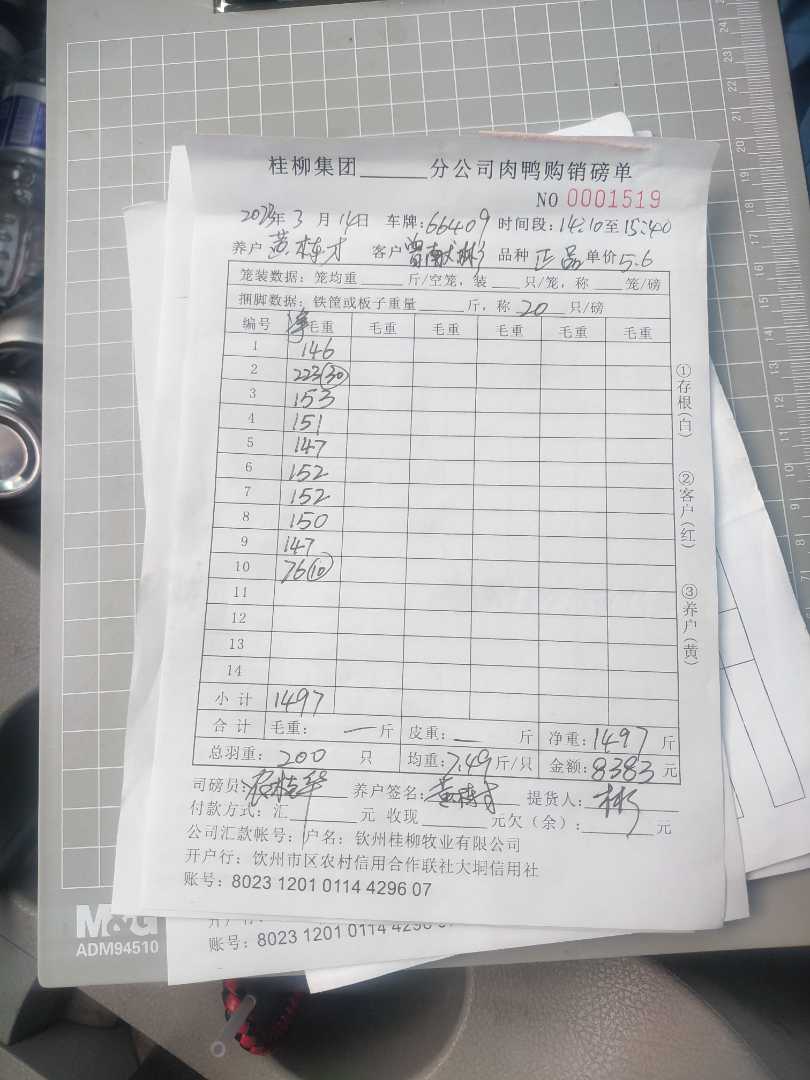 桂柳集团______分公司肉鸭购销磅单
NO 0001519
2023年3月14日 车牌:66409 时间段:14:10至15:40
养户 黄栋才 客户 曾献彬 品种 正品 单价5.6
笼装数据：笼均重______斤/空笼，装____只/笼，称____笼/磅
捆脚数据：铁筐或板子重量______斤，称 20 只/磅
编号 净毛重 毛重 毛重 毛重 毛重 毛重
1 146
2 223(30)
3 153
4 151
5 147
6 152
7 152
8 150
9 147
10 76(10)
11
12
13
14
小计 1497
合计 毛重： — 斤 皮重：— 斤 净重：1497 斤
总羽重：200 只 均重：7.49斤/只 金额：8383元
司磅员： 养户签名：黄栋才 提货人：彬
付款方式：汇______元 收现______元欠（余）：______元
公司汇款帐号：户名：钦州桂柳牧业有限公司
开户行：钦州市区农村信用合作联社大垌信用社
账号：8023 1201 0114 4296 07
①存根(白)
②客户(红)
③养户(黄)
账号：8023 1201 0114 4296 07
M&G
ADM94510
24
23
22
21
20
19
18
17
16
15
14
13
12
11
10
9
8
7